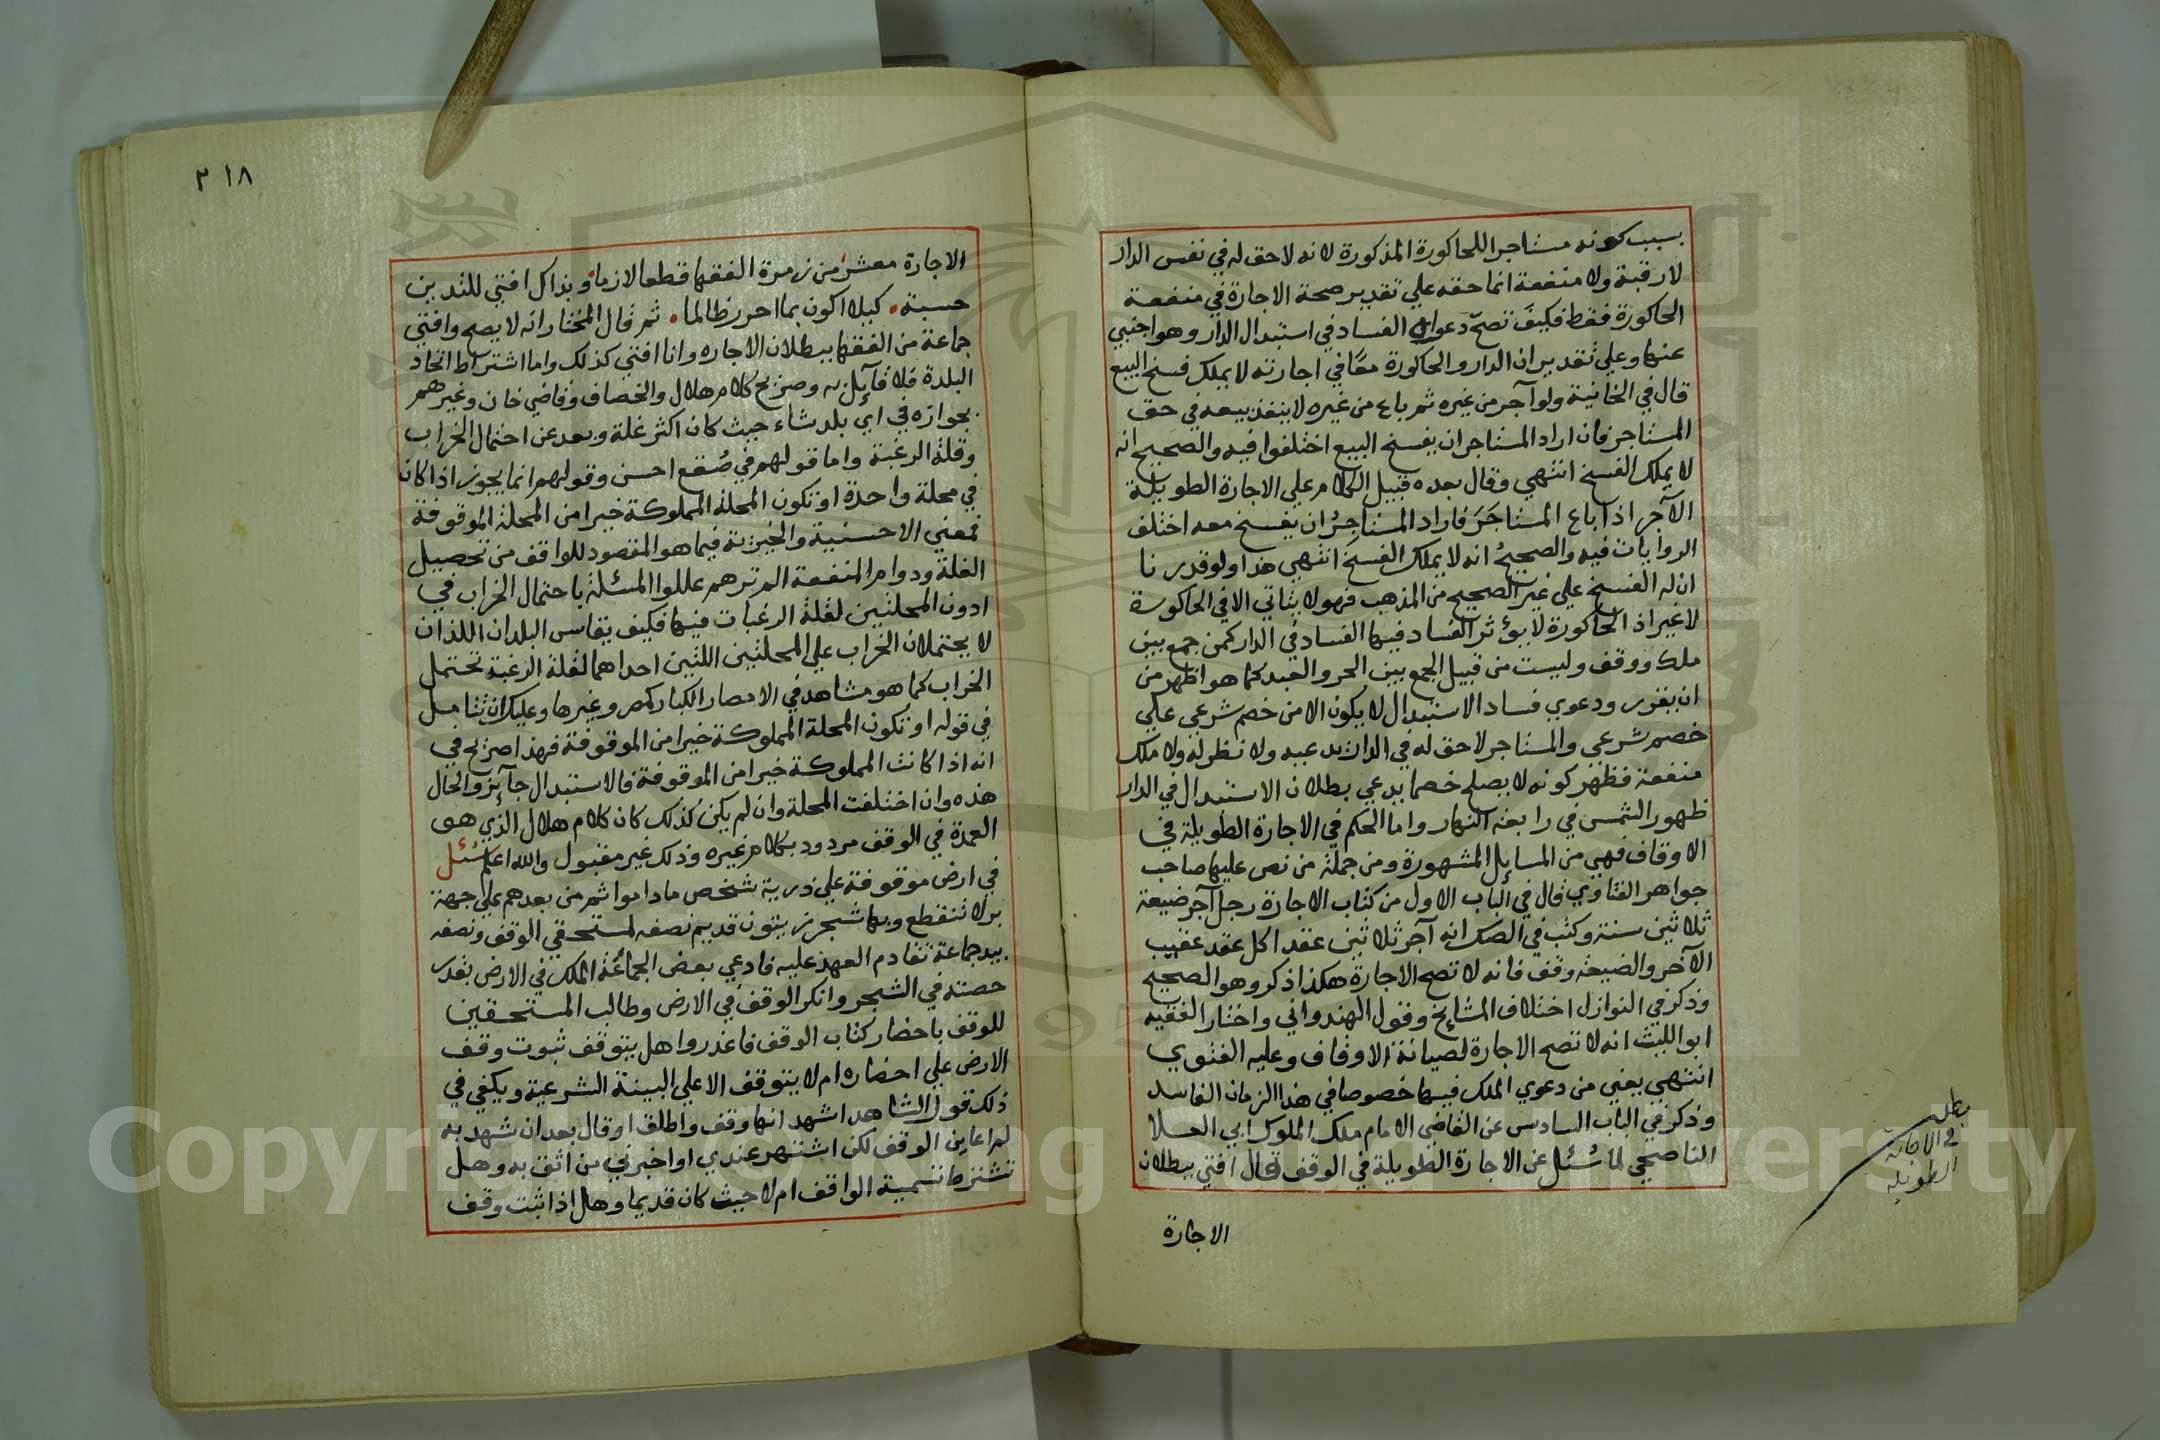 بسبب كونه مستاجرا للحاكورة المذكورة لانه لاحق له في نفس الدار
لارقبة ولا منفعة انما حقه علي تقدير صحة الاجارة في منفعة
الحاكورة فقط فكيف تصح دعواه الفساد في استبدال الدار وهو اجنبي
عنها وعلي تقدير ان الدار والحاكورة معًا في اجارته لا يملك فسخ البيع
قال في الخانية ولو آجر من غيره ثم باع من غيره لا ينفذ بيعه في حق
المستاجر فان اراد المستاجر ان يفسخ البيع اختلفوا فيه والصحيح انه
لا يملك الفسخ انتهي وقال بعده قبيل الكلام علي الاجارة الطويلة
الآجر اذا باع المستاجَرَ فاراد المستاجِرُ ان يفسخ معه اختلف
الروايات فيه والصحيحُ انه لا يملك الفسخَ انتهي هذا ولو قدرنا
ان له الفسخ علي غير الصحيح من المذهب فهو لا يتاتي الا في الحاكورة
لا غير اذ الحاكورة لا يؤثر الفساد فيها الفساد في الدار كمن جمع بين
ملك ووقف وليست من قبيل الجمع بين الحر والعبد كما هو اظهر من
ان يقرر ودعوي فساد الاستبدال لا يكون الا من خصم شرعي علي
خصم شرعي والمستاجر لاحق له في الدار يدعيه ولا نظر له ولا ملك
منفعة فظهر كونه لا يصلح خصما يدعي بطلان الاستبدال في الدار
ظهور الشمس في رابعة النهار واما الحكم في الاجارة الطويلة في
الاوقاف فهي من المسايل المشهورة ومن جملة من نص عليها صاحب
جواهر الفتاوي قال في الباب الاول من كتاب الاجارة رجل آجر ضيعة
ثلاثين سنة وكتب في الصك انه آجر ثلاثين عقدا كل عقد عقيب
الآخر والضيعة وقف فانه لا تصح الاجارة هكذا ذكر وهو الصحيح
وذكر في النوازل اختلاف المشايخ وقول الهندواني واختار الفقيه
ابو الليث انه لا تصح الاجارة لصيانة الاوقاف وعليه الفتوي
انتهي يعني من دعوي الملك فيها خصوصا في هذا الزمان الفاسد
وذكر في الباب السادس عن القاضي الامام ملك الملوك ابي العلا
الناصحي لما سُئل عن الاجارة الطويلة في الوقف قال افتي ببطلان
الاجارة
مطلب
في الاجارة
الطويلة
٣١٨
الاجارة معشر من زمرة الفقها قطعا لازما وبذاك افتي للتدين
حسبة كيلا اكون بما احرر ظالما ثم قال المختار انه لا يصح وافتي
جماعة من الفقها ببطلان الاجاره وانا افتي كذلك واما اشتراط اتحاد
البلدة فلا قآيل به وصريح كلام هلال والخصاف وقاضي خان وغيرهم
بجوازه في اي بلد شاء حيث كان اكثر غلة وبعد عن احتمال الخراب
وقلة الرغبة واما قولهم في صُقع احسن وقولهم انما يجوز اذا كان
في محلة واحدة او تكون المحلة المملوكة خيرا من المحلة الموقوفة
فمعني الاحسنية والخيرية فيما هو المقصود للواقف من تحصيل
الغلة ودوام المنفعة الم ترهم عللوا المسئلة باحتمال الخراب في
ادون المحلتين لقلة الرغبات فيها فكيف يقاس البلدان اللذان
لا يحتملان الخراب علي المحلتين اللتين احداهما لقلة الرغبة تحتمل
الخراب كما هو مشاهد في الامصار الكبار كمصر وغيرها وعليك ان تتامل
في قوله او تكون المحلة المملوكة خيرا من الموقوفة فهذا صريح في
انه اذا كانت المملوكة خيرا من الموقوفة فالاستبدال جآيز والحال
هذه وان اختلفت المحلة وان لم يكن كذلك كان كلام هلال الذي هو
العمدة في الوقف مردود بكلام غيره وذلك غير مقبول والله اعلم سُئل
في ارض موقوفة علي ذرية شخص ما داموا ثم من بعدهم علي جهة
بر لا تنقطع وبها شجر زيتون قديم نصفه لمستحقي الوقف ونصفه
بيد جماعة تقادم العهد عليه فادعي بعض الجماعة الملك في الارض بقدر
حصته في الشجر وانكر الوقف في الارض وطالب المستحقين
للوقف باحضار كتاب الوقف فاعذروا هل يتوقف ثبوت وقف
الارض علي احضاره ام لا يتوقف الا علي البينة الشرعية ويكفي في
ذلك قول الشاهد اشهد انها وقف واطلق او قال بعد ان شهد به
لم اعاين الوقف لكن اشتهر عندي او اخبرني من اثق به وهل
تشترط تسمية الواقف ام لا حيث كان قديما وهل اذا ثبت وقف